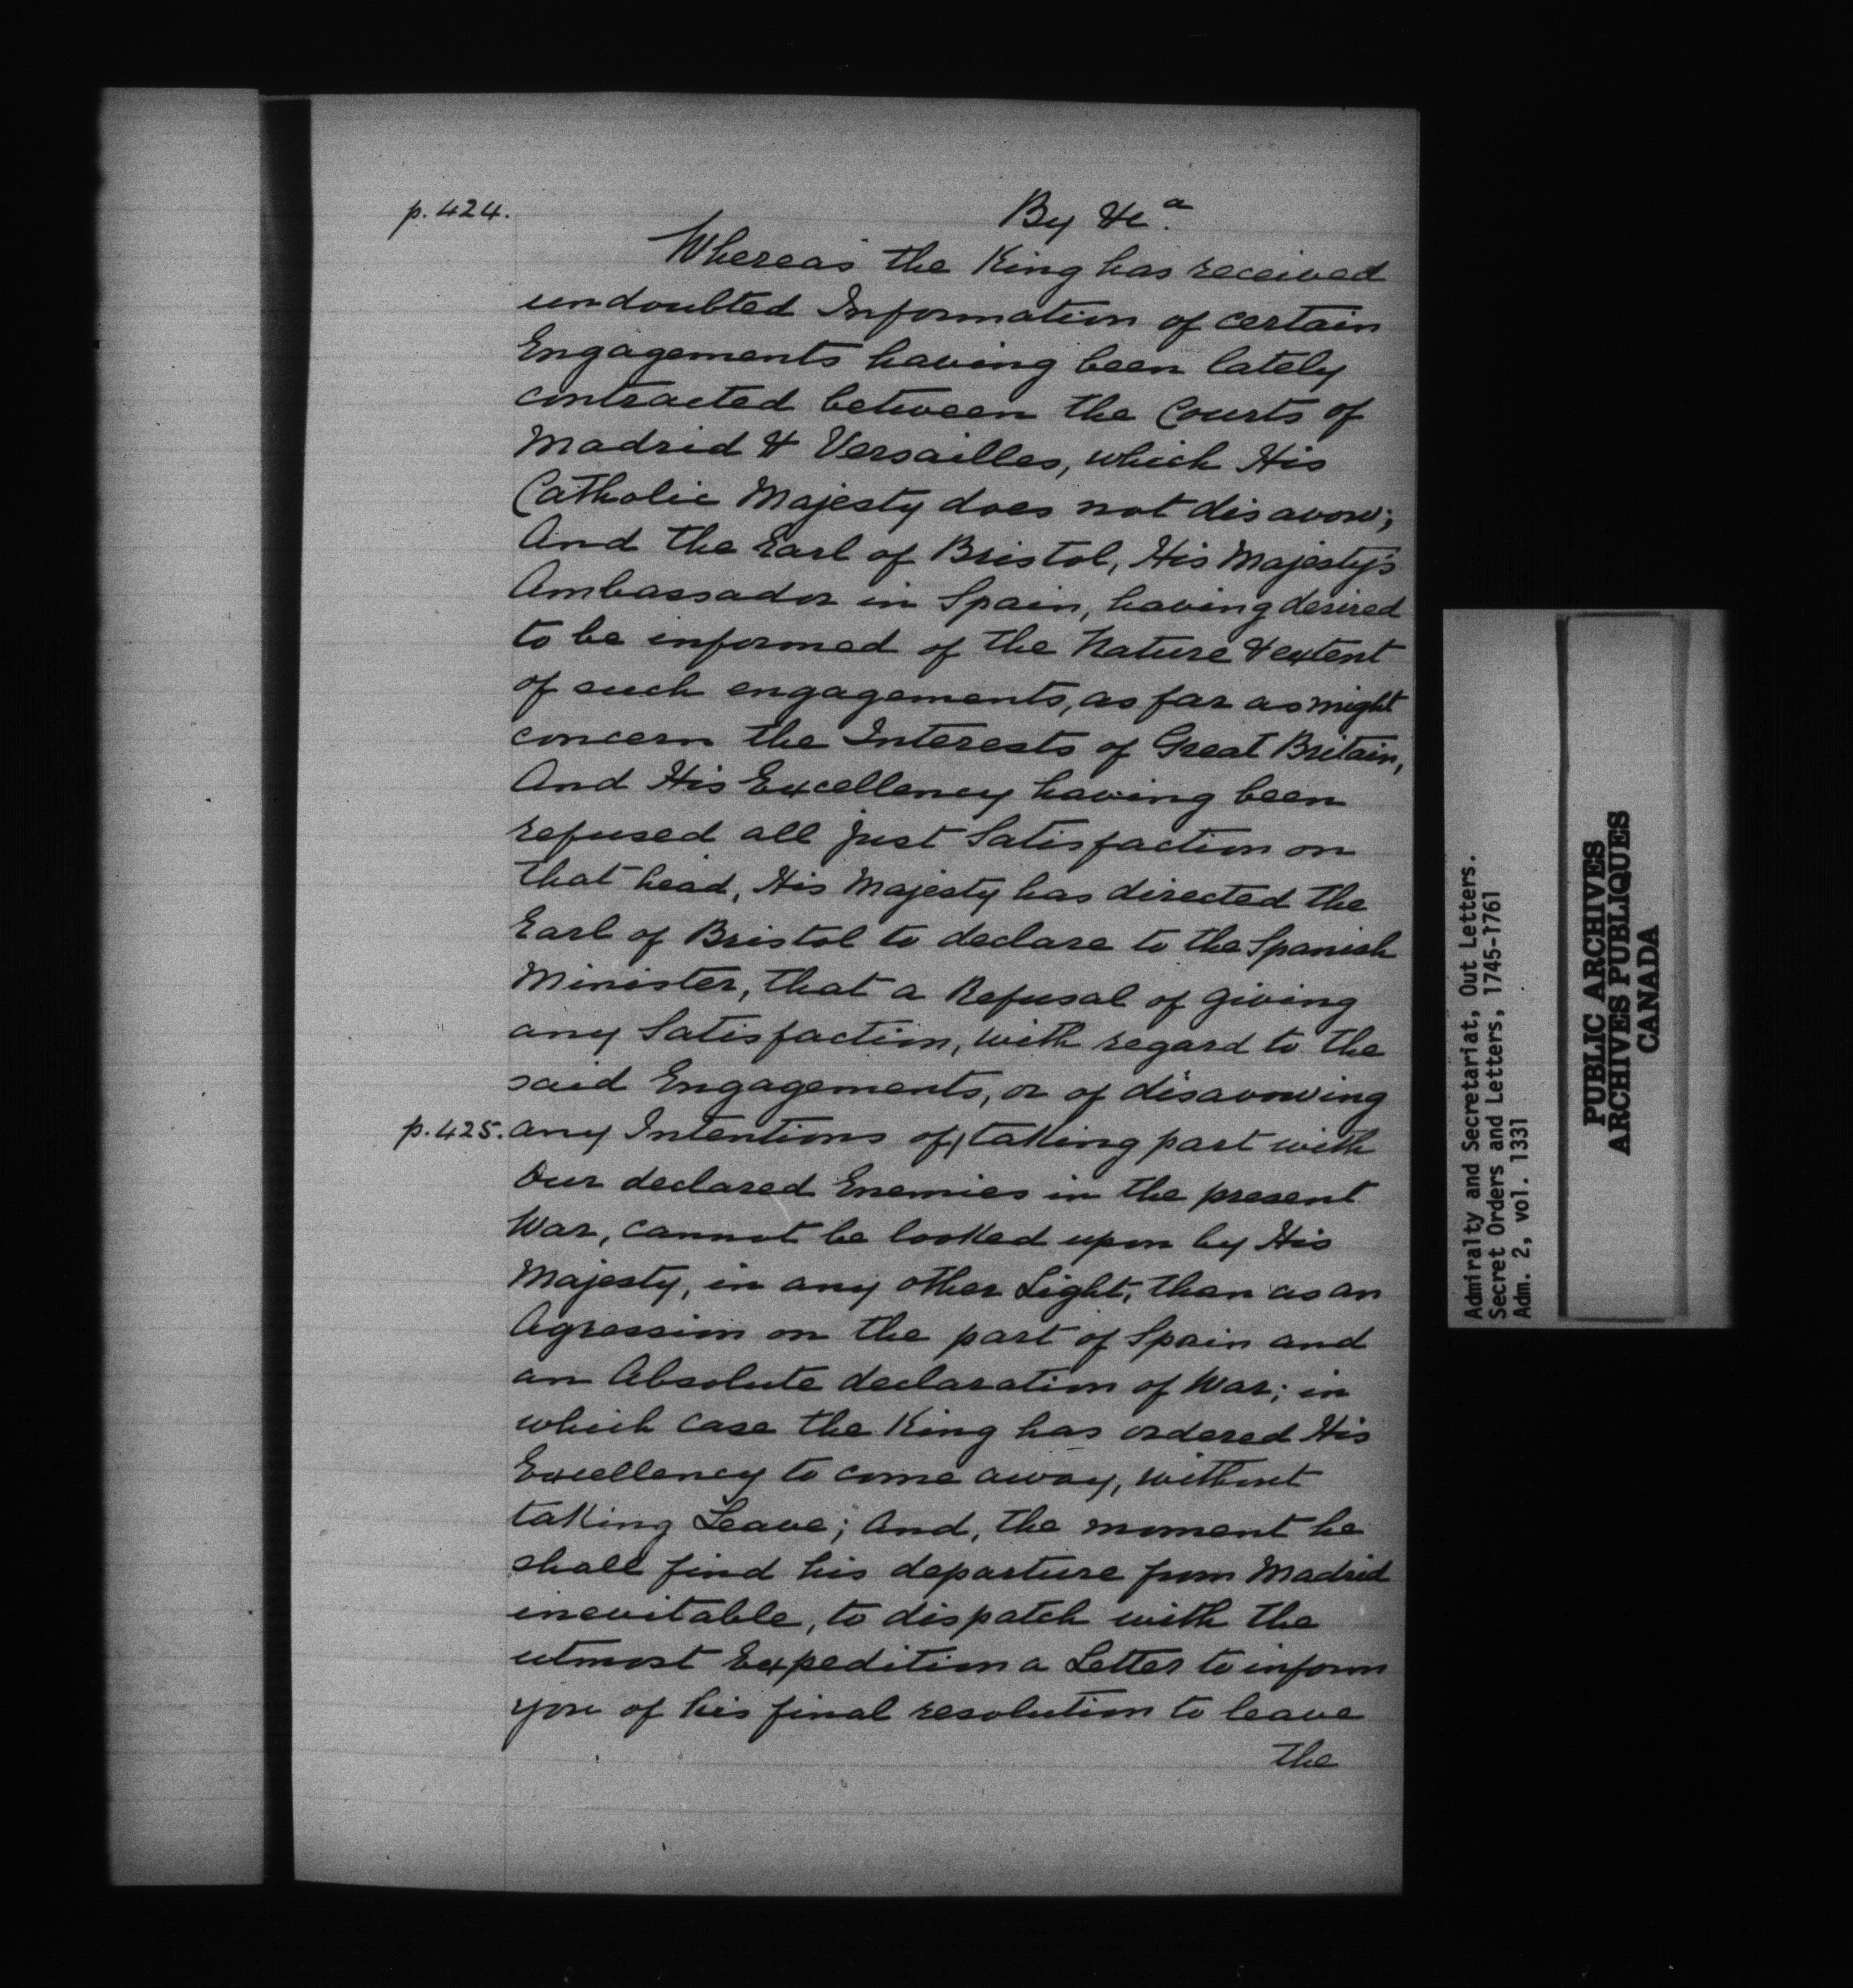 p. 424.
By &c.a
Whereas the King has received
undoubted Information of certain
Engagements having been lately
contracted between the Courts of
Madrid & Versailles, which His
Catholic Majesty does not disavow;
And the Earl of Bristol, His Majesty's
Ambassador in Spain, having desired
to be informed of the Nature & extent
of such engagements, as far as might
concern the Interests of Great Britain,
And His Excellency having been
refused all just Satisfaction on
that head, His Majesty has directed the
Earl of Bristol to declare to the Spanish
Minister, that a Refusal of giving
any Satisfaction, with regard to the
said Engagements, or of disavowing
p. 425. any Intentions of taking part with
Our declared Enemies in the present
War, cannot be looked upon by His
Majesty, in any other Light, than as an
Agression on the part of Spain and
an Absolute declaration of War; in
which case the King has ordered His
Excellency to come away, without
taking Leave; And, the moment he
shall find his departure from Madrid
inevitable, to dispatch with the
utmost Expedition a Letter to inform
you of his final resolution to leave
the
Admiralty and Secretariat, Out Letters.
Secret Orders and Letters, 1745-1761
Adm. 2, vol. 1331
PUBLIC ARCHIVES
ARCHIVES PUBLIQUES
CANADA